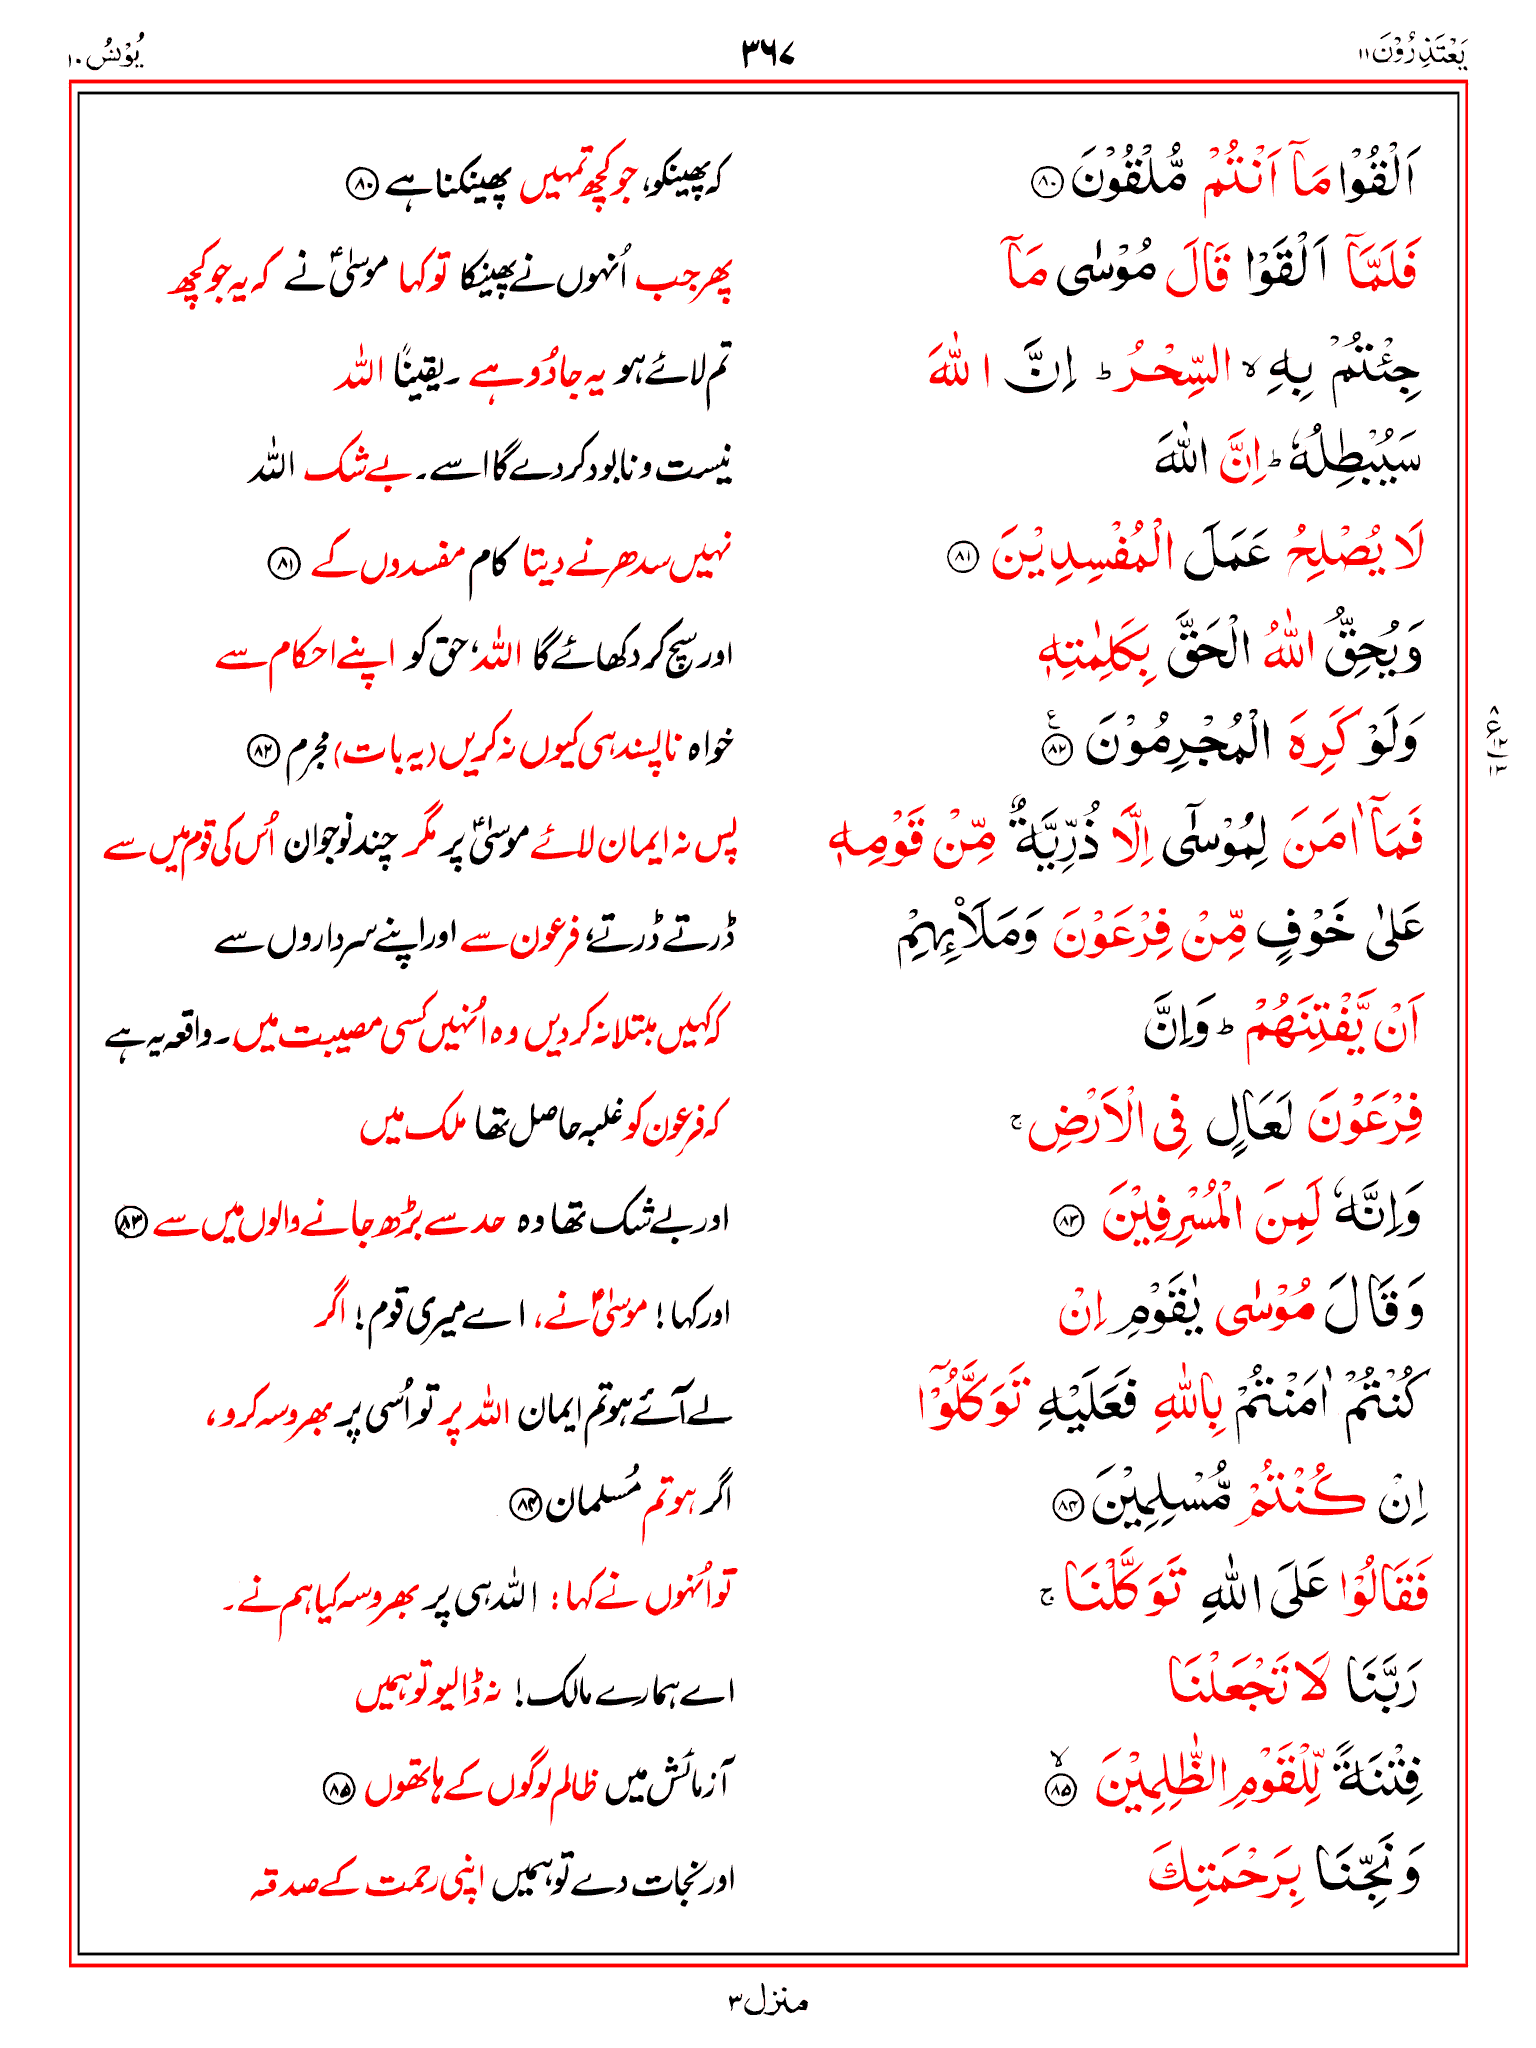 یَعْتَذِرُوْنَ۱۱
۳۶۷
یُوْنُسُ۱۰
اَلْقُوْا مَاۤ اَنْتُمْ مُّلْقُوْنَ ۝۸۰
کہ پھینکو، جو کچھ تمہیں پھینکنا ہے ۝۸۰
فَلَمَّاۤ اَلْقَوْا قَالَ مُوْسٰی مَاۤ
پھر جب اُنہوں نے پھینکا تو کہا موسیٰؑ نے کہ یہ جو کچھ
جِئْتُمْ بِهِ ۙ السِّحْرُ ؕ اِنَّ اللّٰهَ
تم لائے ہو یہ جادُو ہے ۔ یقیناً اللہ
سَیُبْطِلُهٗ ؕ اِنَّ اللّٰهَ
نیست و نابود کردے گا اسے۔ بے شک اللہ
لَا یُصْلِحُ عَمَلَ الْمُفْسِدِیْنَ ۝۸۱
نہیں سدھرنے دیتا کام مفسدوں کے ۝۸۱
وَیُحِقُّ اللّٰهُ الْحَقَّ بِکَلِمٰتِهٖ
اور سچ کر دکھائے گا اللہ، حق کو اپنے احکام سے
وَلَوْ کَرِهَ الْمُجْرِمُوْنَ ۝۸۲ ع
خواہ ناپسند ہی کیوں نہ کریں (یہ بات) مجرم ۝۸۲
۸ ع ۱۲ ۱۳
فَمَاۤ اٰمَنَ لِمُوْسٰۤی اِلَّا ذُرِّیَّةٌ مِّنْ قَوْمِهٖ
پس نہ ایمان لائے موسیٰؑ پر مگر چند نوجوان اُس کی قوم میں سے
عَلٰی خَوْفٍ مِّنْ فِرْعَوْنَ وَمَلَا۟ئِهِمْ
ڈرتے ڈرتے، فرعون سے اور اپنے سرداروں سے
اَنْ یَّفْتِنَهُمْ ؕ وَاِنَّ
کہ کہیں مبتلا نہ کردیں وہ اُنہیں کسی مصیبت میں۔ واقعہ یہ ہے
فِرْعَوْنَ لَعَالٍ فِی الْاَرْضِ ۚ
کہ فرعون کو غلبہ حاصل تھا ملک میں
وَاِنَّهٗ لَمِنَ الْمُسْرِفِیْنَ ۝۸۳
اور بے شک تھا وہ حد سے بڑھ جانے والوں میں سے ۝۸۳
وَقَالَ مُوْسٰی یٰقَوْمِ اِنْ
اور کہا! موسیٰؑ نے، اے میری قوم! اگر
کُنْتُمْ اٰمَنْتُمْ بِاللّٰهِ فَعَلَیْهِ تَوَکَّلُوْۤا
لے آئے ہو تم ایمان اللہ پر تو اُسی پر بھروسہ کرو،
اِنْ کُنْتُمْ مُّسْلِمِیْنَ ۝۸۴
اگر ہو تم مُسلمان ۝۸۴
فَقَالُوْا عَلَی اللّٰهِ تَوَکَّلْنَا ۚ
تو اُنہوں نے کہا: اللہ ہی پر بھروسہ کیا ہم نے۔
رَبَّنَا لَا تَجْعَلْنَا
اے ہمارے مالک! نہ ڈالیو تو ہمیں
فِتْنَةً لِّلْقَوْمِ الظّٰلِمِیْنَ ۝۸۵ ۙ
آزمائش میں ظالم لوگوں کے ہاتھوں ۝۸۵
وَنَجِّنَا بِرَحْمَتِکَ
اور نجات دے تو ہمیں اپنی رحمت کے صدقہ
منزل۳